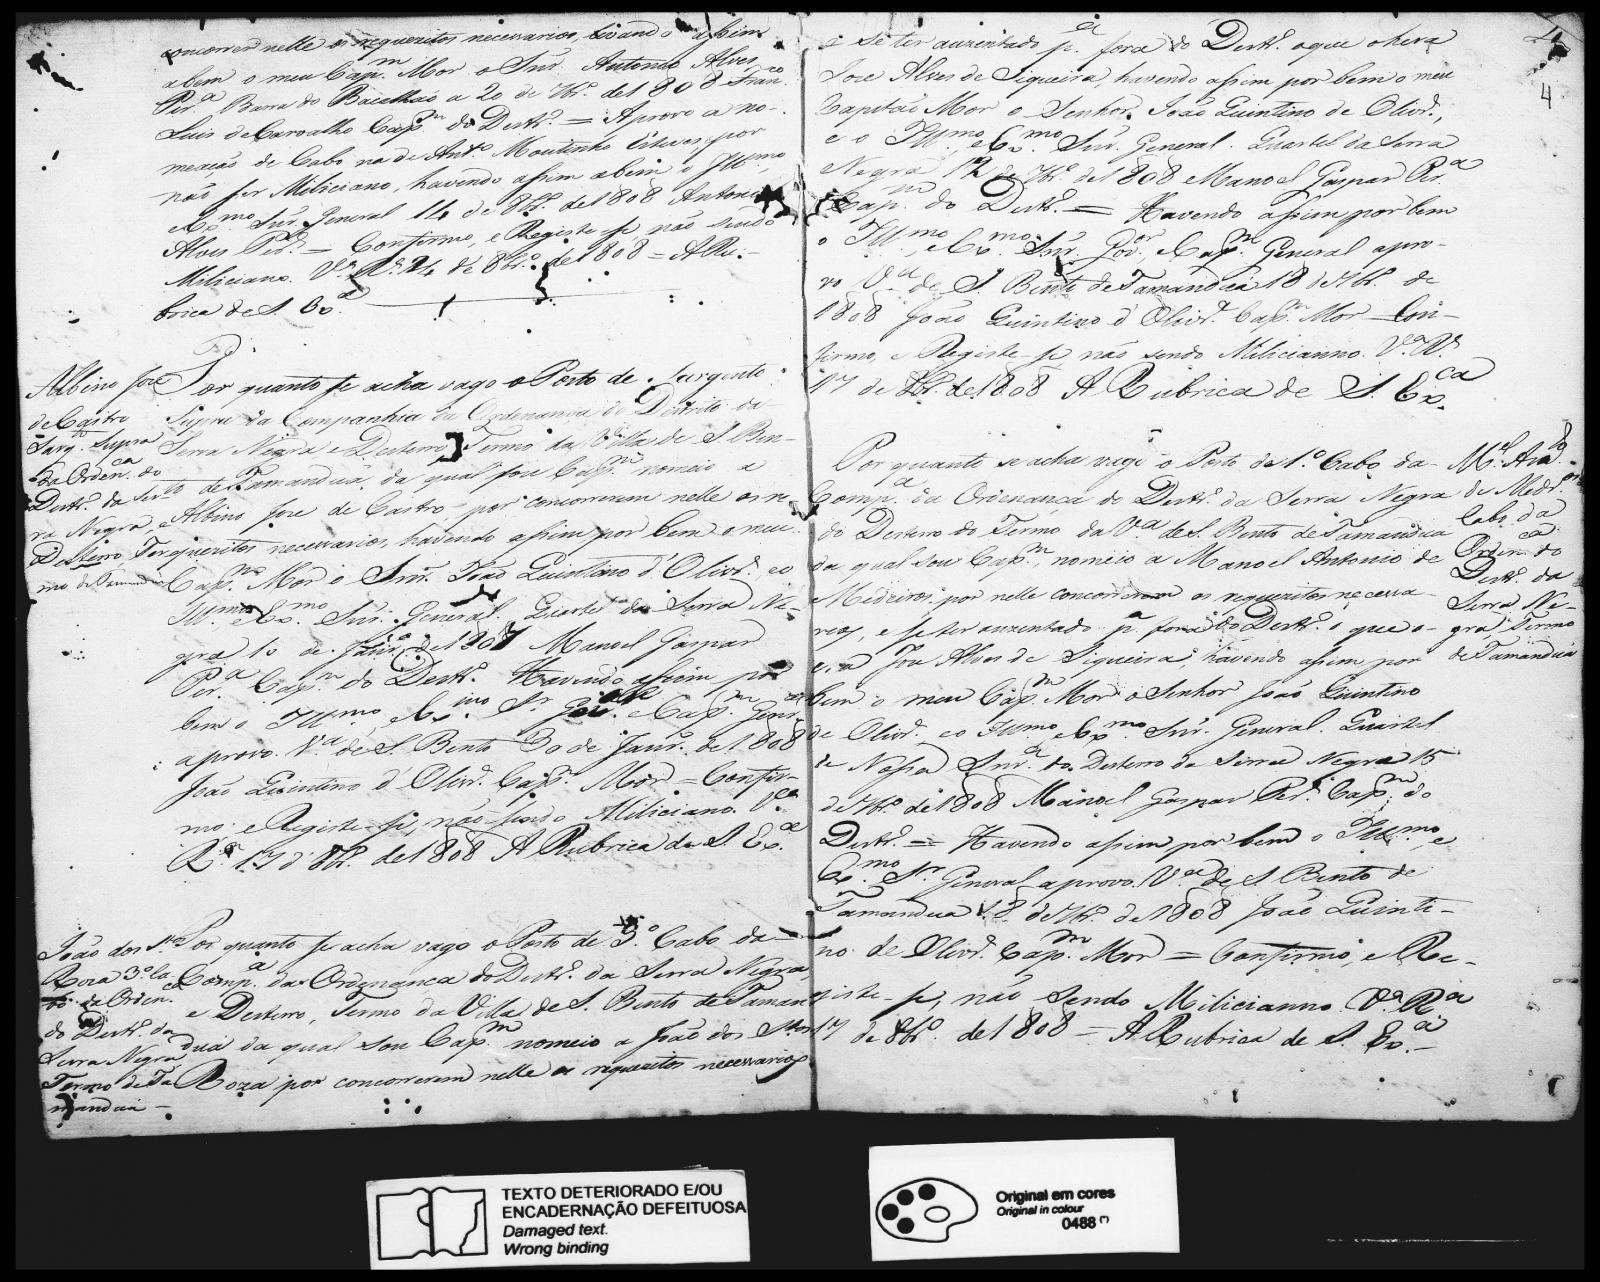 concorrer nelle os requeritos necessarios, havendo assim
abem o meu Cap.m Mor o Snr. Antonio Alves
Per.a Barra do Bacalháo a 20 de 7br.o de 1808 Fran.co
Luis de Carvalho Cap.m do Destr.o = Aprovo a no-
meação de Cabo na de Ant.o Moutinho Esteves por
não ser Miliciano, havendo assim abem o Ill.mo,
e Ex.mo Snr. General 14 de 8br.o de 1808 Antonio
Alves Per.a = Confirmo, e Registe-se não sendo
Miliciano. V.a R.a 24 de 8br.o de 1808 = A Ru-
brica de S. Ex.a
Albino Joze
de Castro
Sarg.to Supra
da Orden.ca do
Destr.o da Ser-
ra Negra, e
Desterro Ter-
mo de Tamandua
Por quanto se acha vago o Posto de Sargento
Supra da Companhia da Ordenança do Destrito da
Serra Negra e Desterro, Termo da Villa de S. Ben-
to de Tamanduá, da qual sou Cap.m, nomeio a
Albino Joze de Castro por concorrerem nelle os re-
queritos necessarios, havendo assim por bem o meu
Cap.m Mor o Snr. João Quintino d'Olivr.a e o
Ill.mo e Ex.mo Snr. General. Quartel da Serra Ne-
gra 10 de Janr.o de 1808 Manoel Gaspar
Per.a Cap.m do Destr.o Havendo assim por
bem o Ill.mo, e Ex.mo Sr. Gov.or e Cap.m Gen.al
aprovo. V.a de S. Bento 30 de Janr.o de 1808
João Quintino d'Olivr.a Cap.m Mor = Confir-
mo, e Registe-se, não sendo Miliciano. V.a
R.a 17 d' 8br.o de 1808 A Rubrica de S. Ex.a
João dos S.tos
Roza 3.o Ca-
bo da Orden.ca
do Destr.o da
Serra Negra
Termo de Ta-
manduá -
Por quanto se acha vago o Posto de 3.o Cabo da
Comp.a da Ordenança do Destr.o da Serra Negra,
e Desterro, Termo da Villa de S. Bento de Taman-
duá da qual sou Cap.m nomeio a João dos S.tos
Roza por concorrerem nelle os requeritos necessarios
4
e se ter auzentado p.a fora do Destr.o o que o hera
Joze Alves de Siqueira, havendo assim por bem o meu
Capitão Mor o Senhor João Quintino de Olivr.a,
e o Ill.mo, e Ex.mo Snr. General. Quartel da Serra
Negra 12 de 7br.o de 1808 Manoel Gaspar Per.a
Cap.m do Destr.o = Havendo assim por bem
o Ill.mo, e Ex.mo Snr. Gov.or, e Cap.m General apro-
vo V.a de S. Bento de Tamanduá 18 de 7br.o de
1808 João Quintino d'Olivr.a Cap.m Mor = Con-
firmo, e Registe-se não sendo Milicianno. V.a R.a
17 de 8br.o de 1808 A Rubrica de S. Ex.ca
Por quanto se acha vago o Posto de 1.o Cabo da
Comp.a da Ordenança do Destr.o da Serra Negra
do Desterro do Termo da V.a de S. Bento de Tamandua
da qual sou Cap.m nomeio a Manoel Antonio de
Medeiros por nelle concorrerem os requeritos necessa-
rios, e se ter auzentado p.a fora do Destr.o o que o
era Joze Alves de Siqueira, havendo assim por
bem o meu Cap.m Mor o Senhor João Quintino
de Olivr.a, e o Ill.mo e Ex.mo Snr. General. Quartel
de Nossa Snr.a do Desterro da Serra Negra 15
de 7br.o de 1808 Manoel Gaspar Per.a Cap.m do
Destr.o = Havendo assim por bem o Ill.mo, e
Ex.mo Sr. General aprovo. V.a de S. Bento de
Tamandua 18 de 7br.o de 1808 João Quinti-
no de Olivr.a Cap.m Mor = Confirmo, e Re-
giste-se, não sendo Milicianno. V.a R.a
17 de 8br.o de 1808 = A Rubrica de S. Ex.a
M.el An.to
de Medr.os
Cabo da
Orden.ca do
Destr.o da
Serra Ne-
gra, Termo
de Tamandua
TEXTO DETERIORADO E/OU
ENCADERNAÇÃO DEFEITUOSA
Damaged text.
Wrong binding
Original em cores
Original in colour
0488 (*)